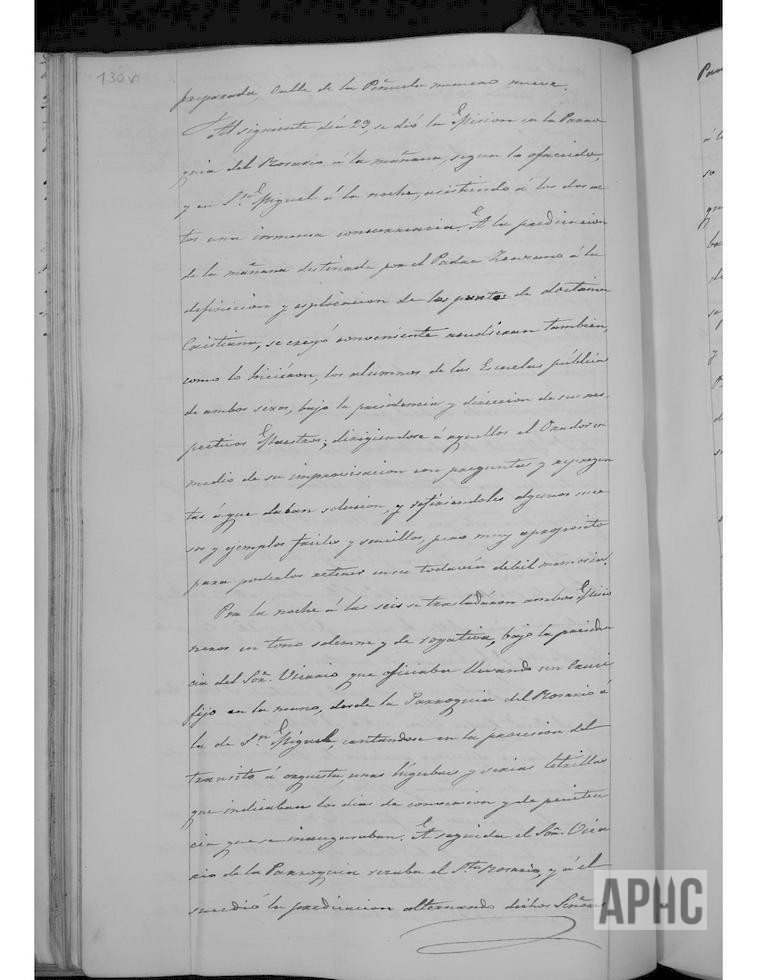 130 v
preparada, Calle de la Peñuela numero nueve.
Al siguiente dia 29, se dió la Mision en la Parro
quia del Rosario á la mañana, segun lo ofrecido,
y en Sn. Miguel á la noche, asistiendo á los dos ac
tos una inmensa concurrencia. A la predicacion
de la mañana destinada por el Padre Zenzano á la
definicion y esplicacion de los puntos de doctrina
Cristiana, se creyó conveniente acudieran tambien,
como lo hicieron, los alumnos de las Escuelas públicas
de ambos sexos, bajo la presidencia y direccion de sus res-
pectivos Maestros; dirigiendose á aquellos el Orador en
medio de su improvisacion con preguntas y repregun
tas á que daban solucion, y refiriendoles algunos suce
sos y ejemplos faciles y sencillos, pero muy aproposito
para poderlos retener en su todavia debil memoria.
Por la noche á las seis se trasladaron ambos Misio
neros en tono solemne y de rogativa, bajo la presiden
cia del Sor. Vicario que oficiaba llevando un Cruci
fijo en la mano, desde la Parroquia del Rosario á
la de Sn. Miguel, cantandose en la procesion del
transito á orquesta, unas lúgubres y serias letrillas
que indicaban los dias de conversion y de peniten
cia que se inauguraban. A seguida el Sor. Vica
rio de la Parroquia rezaba el Sto. Rosario, y á el
sucedió la predicacion alternando dichos Señores
Par
á l
so
qu
APHC